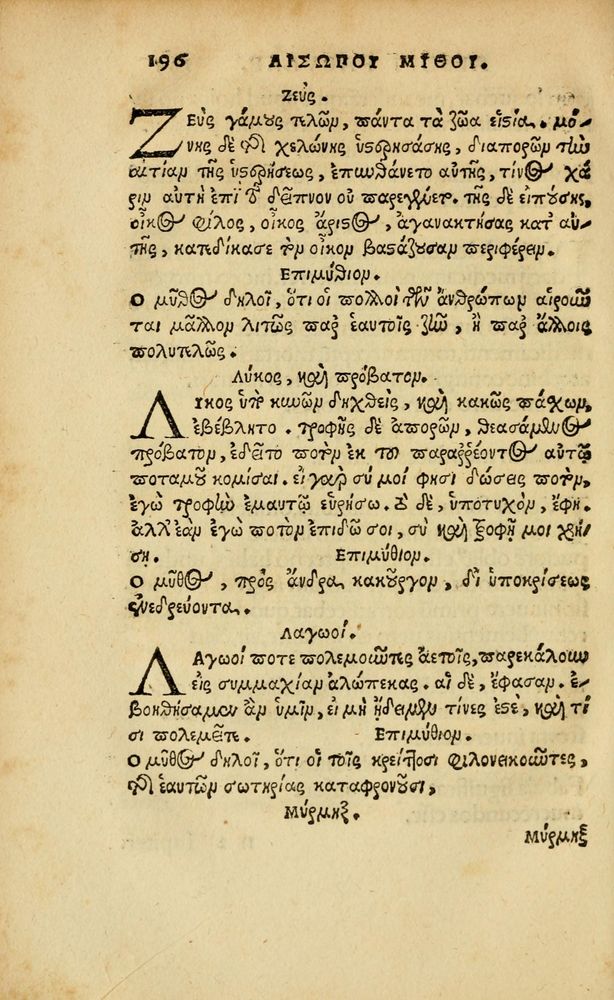 196 ΑΙΣΩΠΟΥ ΜΥΘΟΙ.
Ζεύς.
ΖΕὺς γάμους τελῶν, πάντα τὰ ζῶα εἱστία. μό-
νης δὲ τῆς χελώνης ὑστερησάσης, διαπορῶν τὴν
αἰτίαν τῆς ὑστερήσεως, ἐπυνθάνετο αὐτῆς, τίνος χά
ριν αὐτὴ ἐπὶ τὸ δεῖπνον οὐ παρεγένετο. τῆς δὲ εἰπούσης,
οἶκος φίλος, οἶκος ἄριστος, ἀγανακτήσας κατ' αὐ-
τῆς, κατεδίκασε τὸν οἶκον βαστάζουσαν περιφέρειν.
Επιμύθιον.
Ο μῦθος δηλοῖ, ὅτι οἱ πολλοὶ τῶν ἀνθρώπων αἱροῦν
ται μᾶλλον λιτῶς παρ' ἑαυτοῖς ζῆν, ἢ παρ' ἄλλοις
πολυτελῶς.
Λύκος, καὶ πρόβατον.
ΛΥκος ὑπὸ κυνῶν δηχθεὶς, καὶ κακῶς πάσχων,
ἐβέβλητο. τροφῆς δὲ ἀπορῶν, θεασάμενος
πρόβατον, ἐδεῖτο ποτὸν ἐκ τοῦ παραῤῥέοντος αὐτῷ
ποταμοῦ κομίσαι. εἰ γὰρ σύ μοι φησὶ δώσεις ποτὸν,
ἐγὼ τροφὴν ἐμαυτῷ εὑρήσω. τὸ δὲ, ὑποτυχὸν, ἔφη.
ἀλλ' ἐὰν ἐγὼ ποτὸν ἐπιδῶ σοι, σὺ καὶ τροφῇ μοι χρή-
ση. Επιμύθιον.
Ο μῦθος, πρὸς ἄνδρα κακοῦργον, δι' ὑποκρίσεως
ἐνεδρεύοντα.
Λαγωοί.
ΛΑγωοί ποτε πολεμοῦντες ἀετοῖς, παρεκάλουν
εἰς συμμαχίαν ἀλώπεκας. αἱ δὲ, ἔφασαν. ἐ-
βοηθήσαμεν ἂν ὑμῖν, εἰ μὴ ᾔδειμεν τίνες ἐστὲ, καὶ τί
σι πολεμεῖτε. Επιμύθιον.
Ο μῦθος δηλοῖ, ὅτι οἱ τοῖς κρείττοσι φιλονεικοῦντες,
τῆς ἑαυτῶν σωτηρίας καταφρονοῦσι,
Μύρμηξ.
Μύρμηξ